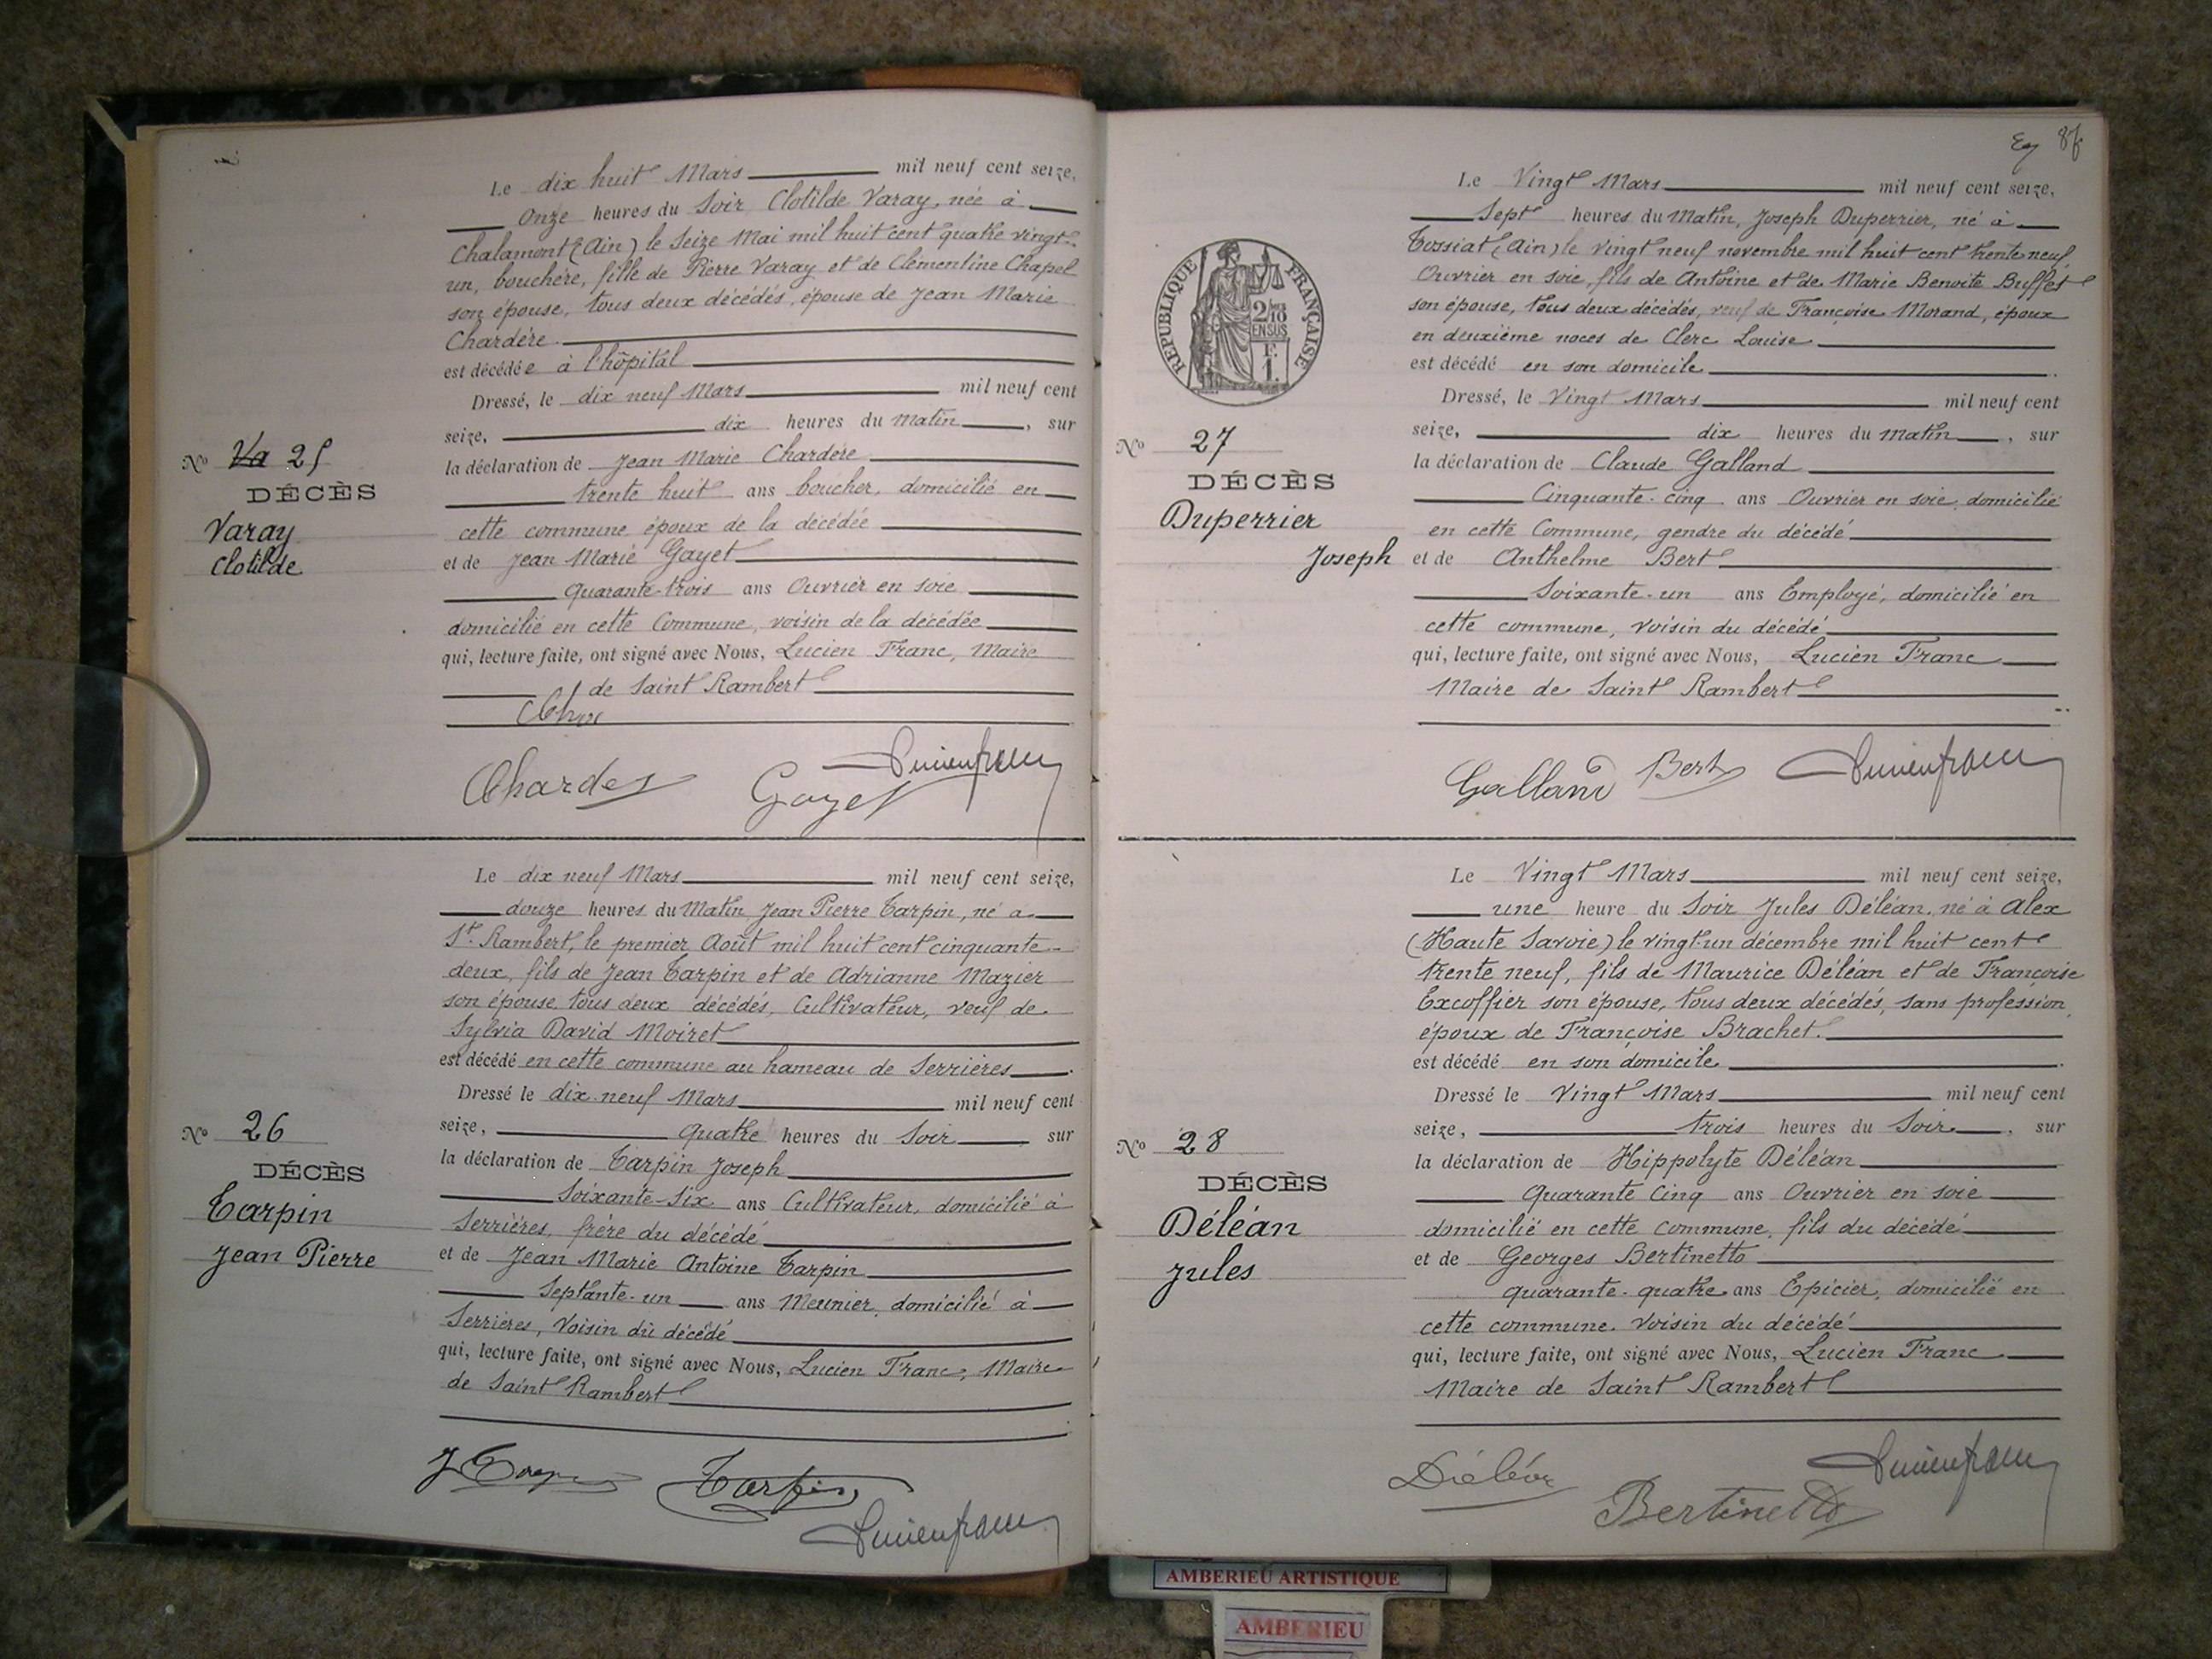 Le dix huit Mars mil neuf cent seize,
Onze heures du Soir Clotilde Varay, née à
Chalamont (Ain) le Seize Mai mil huit cent quatre vingt-
un, bouchère, fille de Pierre Varay et de Clémentine Chapel
son épouse, tous deux décédés, épouse de Jean Marie
Chardère.
est décédée à l'hôpital
Dressé, le dix neuf Mars mil neuf cent
seize, dix heures du matin, sur
la déclaration de Jean Marie Chardère
trente huit ans boucher, domicilié en
cette commune époux de la décédée
et de Jean Marie Gayet
Quarante-trois ans Ouvrier en soie
domicilié en cette Commune, voisin de la décédée
qui, lecture faite, ont signé avec Nous, Lucien Franc, Maire
de Saint Rambert
No Va 25
DÉCÈS
Varay
Clotilde
Gayet
Lucien franc
Le dix neuf Mars mil neuf cent seize,
douze heures du Matin Jean Pierre Tarpin, né à
St. Rambert, le premier Août mil huit cent cinquante-
deux, fils de Jean Tarpin et de Adrianne Mazier
son épouse, tous deux décédés, Cultivateur, veuf de
Sylvia David Moiret
est décédé en cette commune au hameau de Serrières.
Dressé le dix-neuf Mars mil neuf cent
seize, Quatre heures du Soir sur
la déclaration de Tarpin Joseph
Soixante-six ans Cultivateur, domicilié à
Serrières, frère du décédé
et de Jean Marie Antoine Tarpin
Septante-un ans Meunier, domicilié à
Serrières, Voisin du décédé
qui, lecture faite, ont signé avec Nous, Lucien Franc, Maire
de Saint Rambert
No 26
DÉCÈS
Tarpin
Jean Pierre
Tarpin
Lucien franc
Le Vingt Mars mil neuf cent seize,
Sept heures du Matin, Joseph Duperrier, né à
Tossiat (Ain) le vingt neuf novembre mil huit cent trente neuf,
Ouvrier en soie, fils de Antoine et de Marie Benoite Buffet
son épouse, tous deux décédés, veuf de Françoise Morand, époux
en deuxième noces de Clerc Louise
est décédé en son domicile.
Dressé, le Vingt Mars mil neuf cent
seize, dix heures du matin, sur
la déclaration de Claude Galland
Cinquante-cinq ans Ouvrier en soie, domicilié
en cette Commune, gendre du décédé
et de Anthelme Bert
Soixante-un ans Employé, domicilié en
cette commune, voisin du décédé
qui, lecture faite, ont signé avec Nous, Lucien Franc
Maire de Saint Rambert
RÉPUBLIQUE FRANÇAISE
No 27
DÉCÈS
Duperrier
Joseph
Galland Bert Lucien franc
Le Vingt Mars mil neuf cent seize,
une heure du Soir Jules Déléan, né à Alex
(Haute Savoie) le vingt-un décembre mil huit cent
trente neuf, fils de Maurice Déléan et de Françoise
Excoffier son épouse, tous deux décédés, sans profession,
époux de Françoise Brachet.
est décédé en son domicile.
Dressé le Vingt Mars mil neuf cent
seize, trois heures du Soir, sur
la déclaration de Hippolyte Déléan
Quarante Cinq ans Ouvrier en soie
domicilié en cette commune, fils du décédé
et de Georges Bertinetto
quarante-quatre ans Epicier, domicilié en
cette commune. Voisin du décédé
qui, lecture faite, ont signé avec Nous, Lucien Franc
Maire de Saint Rambert
No 28
DÉCÈS
Déléan
Jules
Déléan
Bertinetto
Lucien franc
AMBERIEU ARTISTIQUE
AMBERIEU